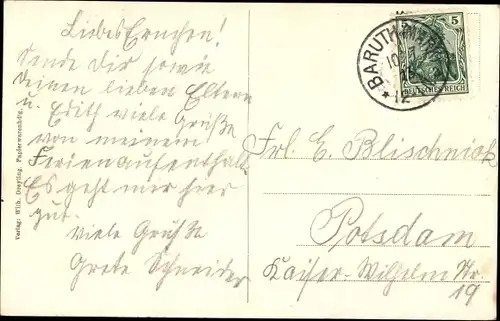 Liebes Ernchen!
Sende Dir sowie
Deinen lieben Eltern
u. Edith viele Grüße
von meinem
Ferienaufenthalt.
Es geht mir hier
gut.
Viele Grüße
Grete Schneider
Frl. E. Blischniok
Potsdam
Kaiser-Wilhelm Str.
19
BARUTH (MARK)
* 12
5
DEUTSCHES REICH
Verlag: Wilh. Papierwarenhdg.